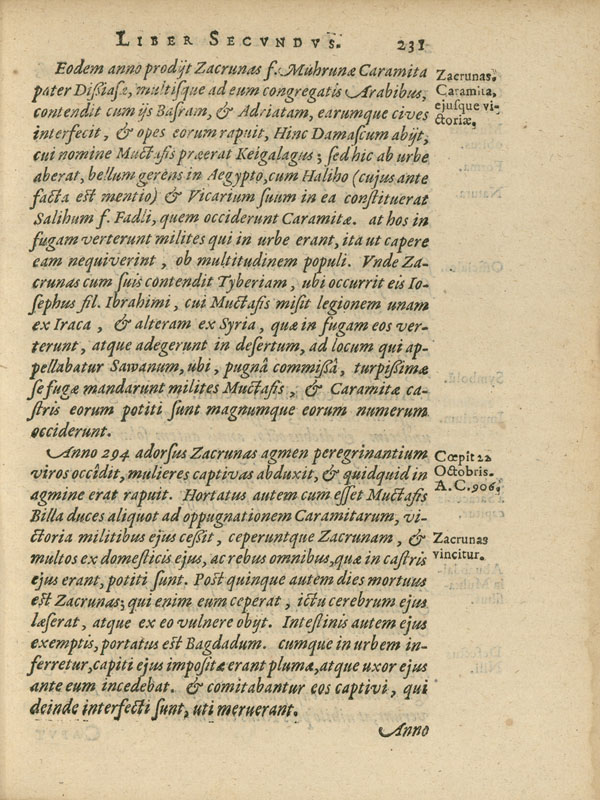 LIBER SECVNDVS. 231
Eodem anno prodijt Zacrunas f. Muhrunæ Caramita
pater Dißiasæ, multisque ad eum congregatis Arabibus,
contendit cum ijs Basram, & Adriatam, earumque cives
interfecit, & opes eorum rapuit, Hinc Damascum abijt,
cui nomine Muctafis præerat Keigalagus; sed hic ab urbe
aberat, bellum gerens in Aegypto, cum Haliho (cujus ante
facta est mentio) & Vicarium suum in ea constituerat
Salihum f. Fadli, quem occiderunt Caramitæ. at hos in
fugam verterunt milites qui in urbe erant, ita ut capere
eam nequiverint, ob multitudinem populi. Vnde Za-
crunas cum suis contendit Tyberiam, ubi occurrit eis Io-
sephus fil. Ibrahimi, cui Muctafis misit legionem unam
ex Iraca, & alteram ex Syria, quæ in fugam eos ver-
terunt, atque adegerunt in desertum, ad locum qui ap-
pellabatur Sawanum, ubi, pugnâ commißâ, turpißimæ
se fugæ mandarunt milites Muctafis, & Caramitæ ca-
stris eorum potiti sunt magnumque eorum numerum
occiderunt.
Anno 294 adorsus Zacrunas agmen peregrinantium
viros occîdit, mulieres captivas abduxit, & quidquid in
agmine erat rapuit. Hortatus autem cum esset Muctafis
Billa duces aliquot ad oppugnationem Caramitarum, vi-
ctoria militibus ejus ceßit, ceperuntque Zacrunam, &
multos ex domesticis ejus, ac rebus omnibus, quæ in castris
ejus erant, potiti sunt. Post quinque autem dies mortuus
est Zacrunas; qui enim eum ceperat, ictu cerebrum ejus
læserat, atque ex eo vulnere obijt. Intestinis autem ejus
exemptis, portatus est Bagdadum. cumque in urbem in-
ferretur, capiti ejus impositæ erant plumæ, atque uxor ejus
ante eum incedebat. & comitabantur eos captivi, qui
deinde interfecti sunt, uti meruerant.
Anno
Zacrunas.
Caramita,
ejusque vi-
ctoriæ.
Cœpit 22
Octobris.
A.C. 906.
Zacrunas
vincitur.